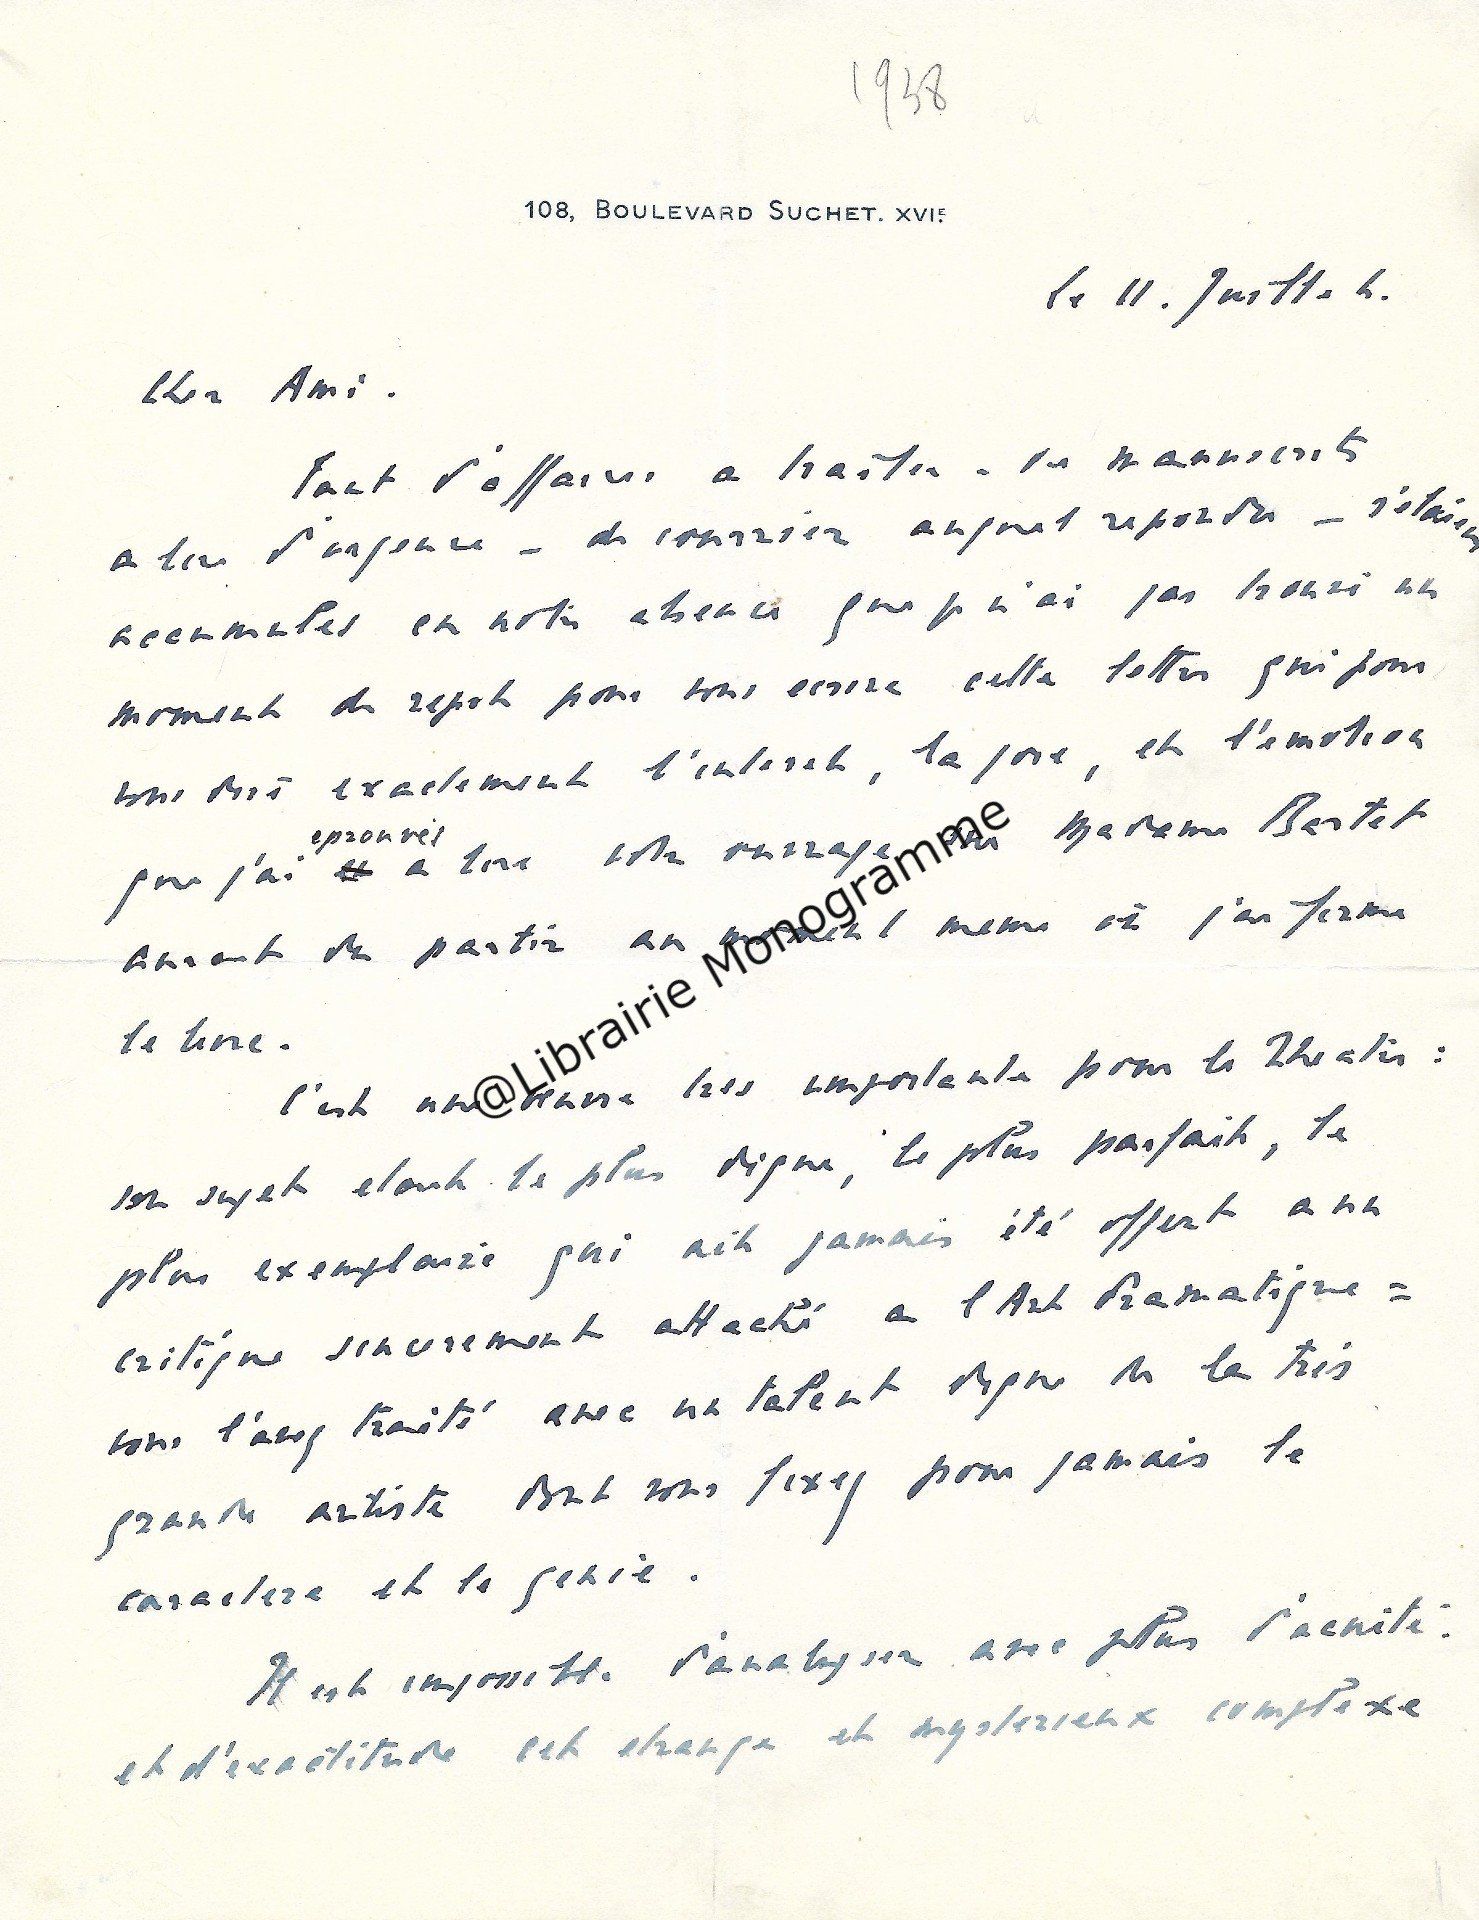 1938
108, BOULEVARD SUCHET. XVIE.
Le 11. Juillet.
Cher Ami.
Tant d'affaires a traiter - de manuscrits
a lire d'urgence - de courrier auquel repondre - s'étaient
accumulés en notre absence que je n'ai pas trouvé un
moment de repit pour vous ecrire cette lettre qui pour
vous dire exactement l'interet, la joie, et l'emotion
que j'ai eprouvés a lire votre ouvrage sur Madame Bartet
avant de partir au moment meme où j'ai fermé
le livre.
C'est une oeuvre tres importante pour le Theatre :
son sujet etant le plus digne, le plus parfait, le
plus exemplaire qui ait jamais été offert a un
critique sincerement attaché a l'Art Dramatique =
vous l'avez traité avec un talent digne de la très
grande artiste dont vous fixez pour jamais le
caractere et le genie.
Il est impossible d'analyser avec plus d'acuité.
et d'exactitude cet etrange et mysterieux complexe
@Librairie Monogramme